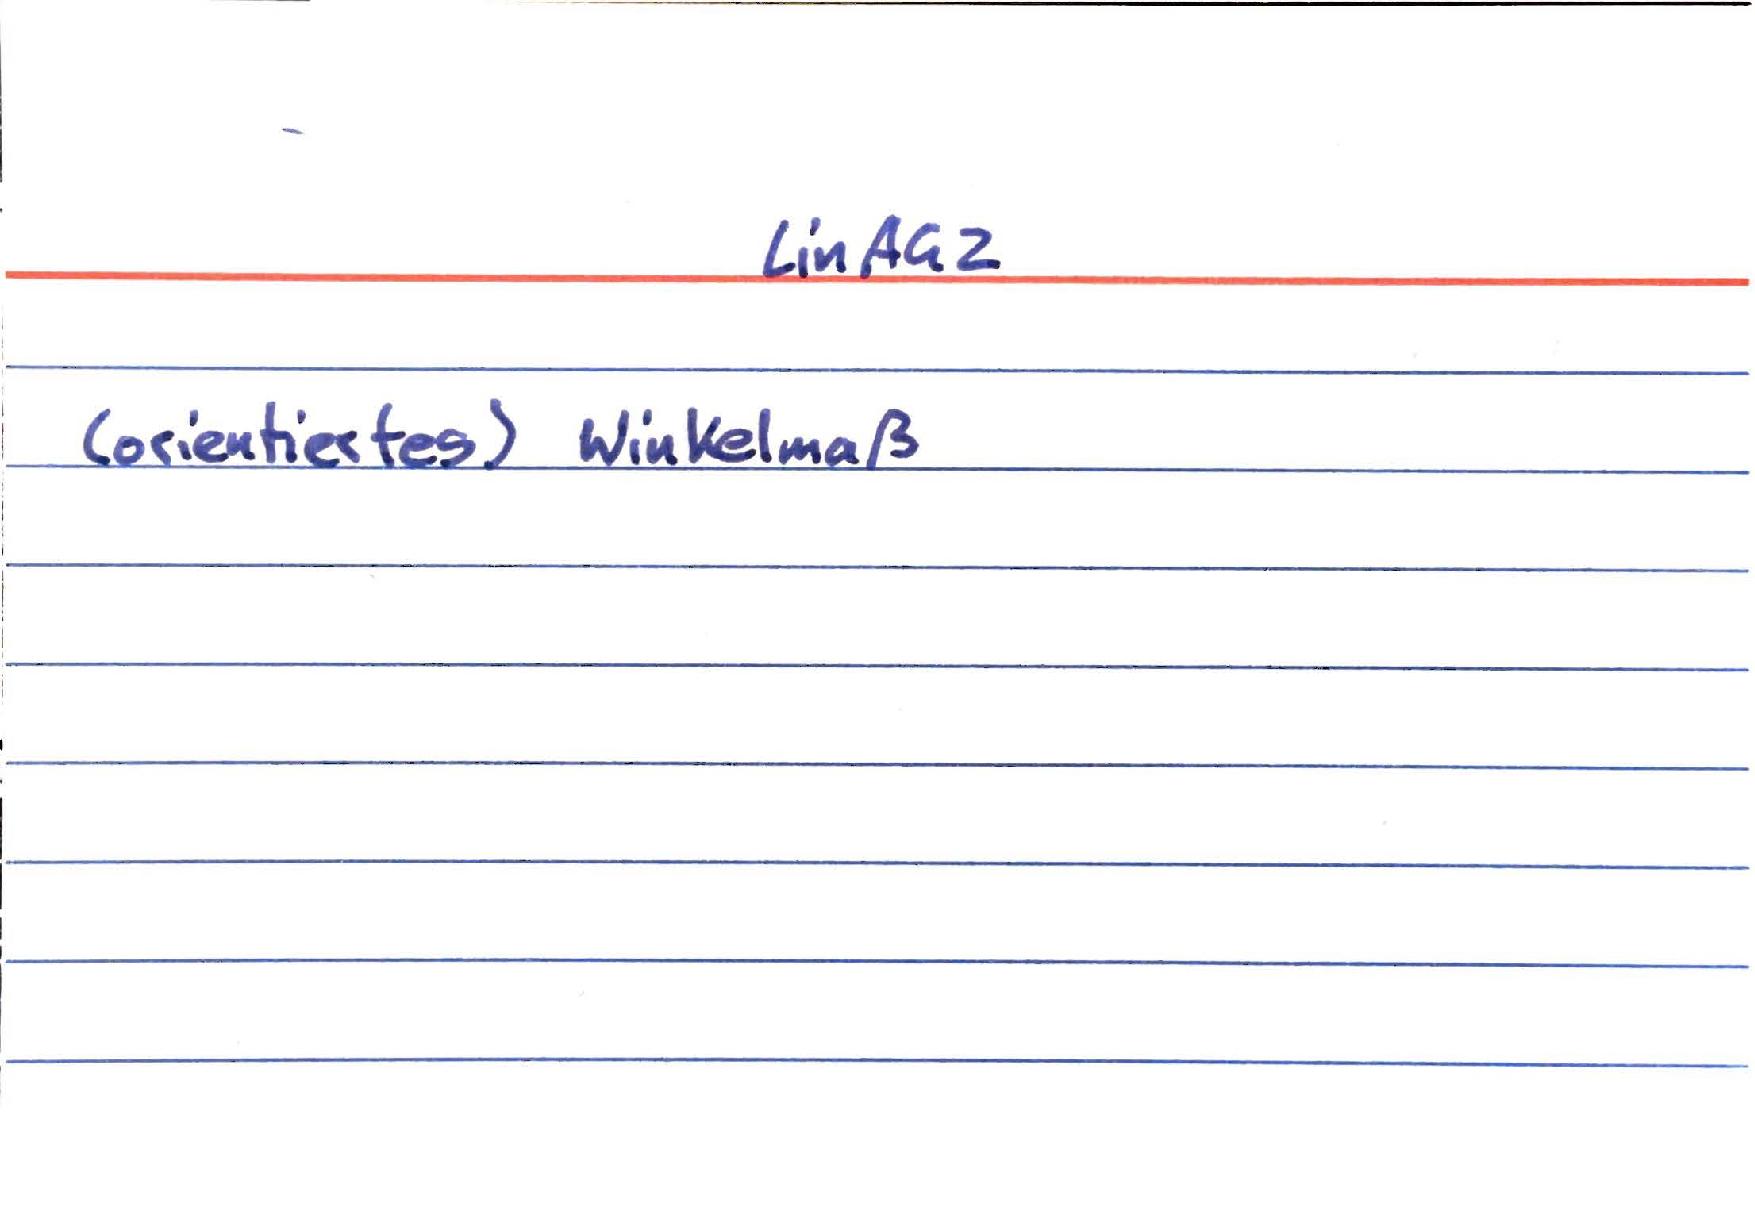 LinAG2
(orientiertes) Winkelmaß